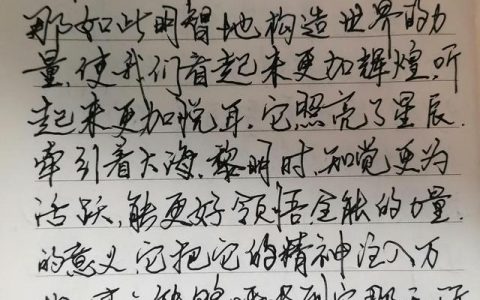 那如此明智地构造世界的力
量,使我们看起来更加辉煌,听
起来更加悦耳.它照亮了星辰.
牵引着大海.黎明时,知觉更为
活跃,能更好领悟全能的力量.
的意义.它把它的精神注入万